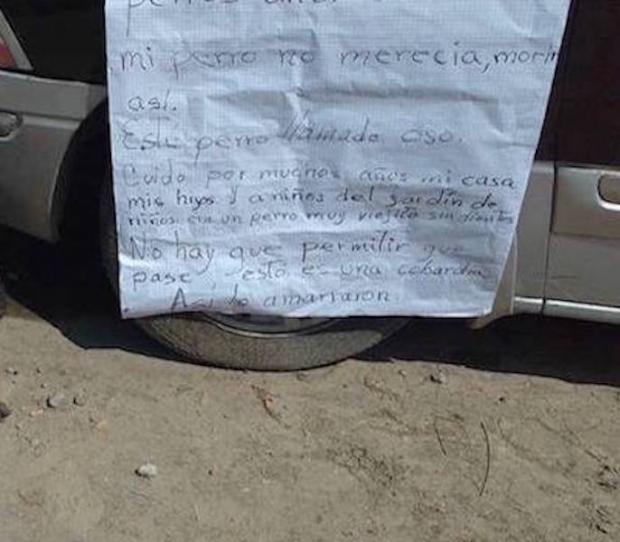 mi perro no merecia, morir
asi.
Este perro llamado oso.
Cuido por muchos años mi casa
mis hijos y a niños del Jardin de
niños era un perro muy viejito sin dientes
No hay que permitir que
pase esto es una cobardia
Asi lo amarraron.